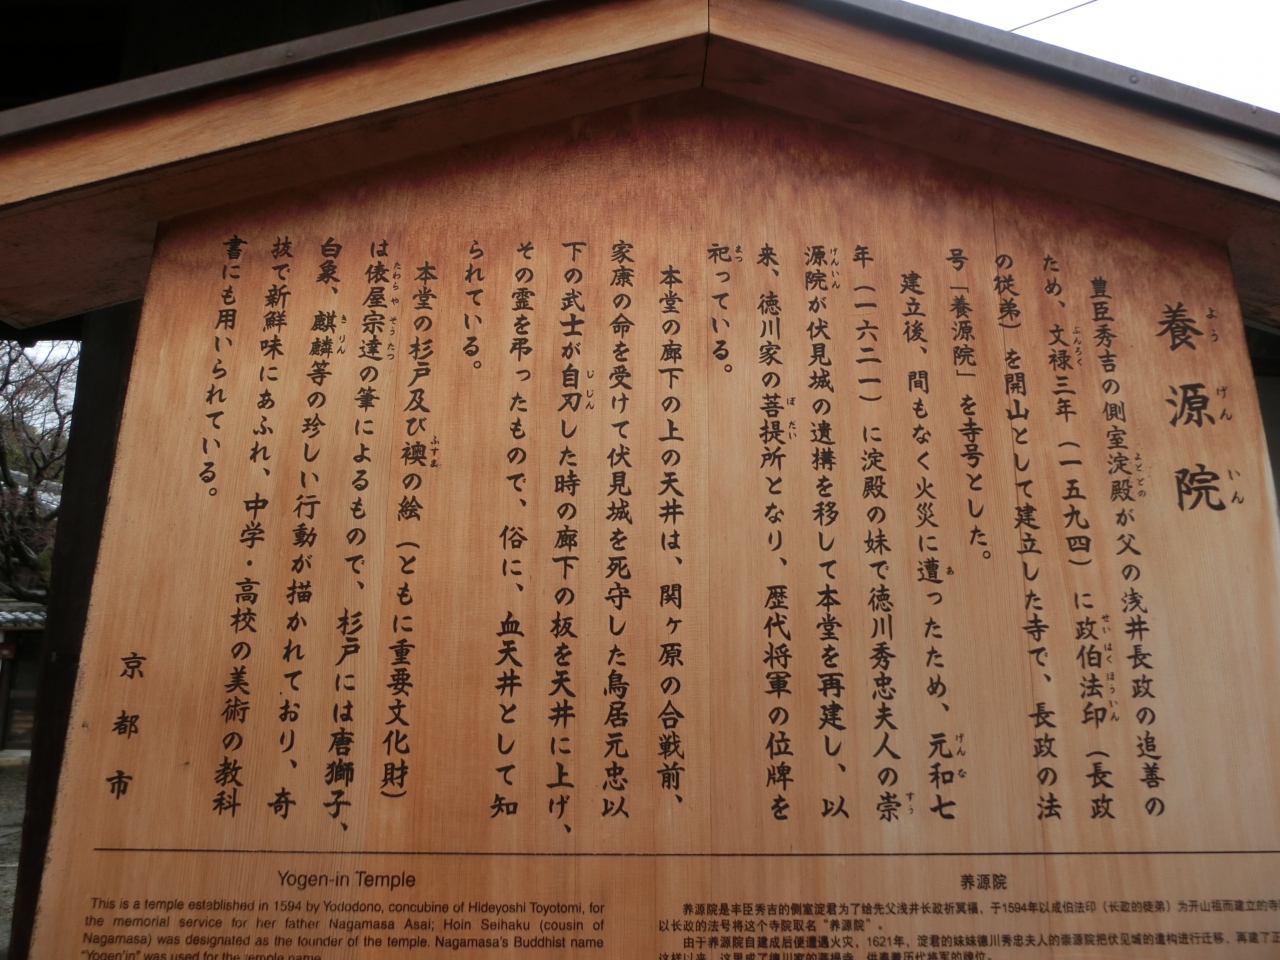 養源院
よう げん いん
豊臣秀吉の側室淀殿が父の浅井長政の追善の
よどどの
ため、文禄三年（一五九四）に政伯法印（長政
ぶんろく せいはくほういん
の従弟）を開山として建立した寺で、長政の法
号「養源院」を寺号とした。
建立後、間もなく火災に遭ったため、元和七
あ げんな
年（一六二一）に淀殿の妹で徳川秀忠夫人の崇
すう
源院が伏見城の遺構を移して本堂を再建し、以
げんいん
来、徳川家の菩提所となり、歴代将軍の位牌を
ぼだい
祀っている。
まつ
本堂の廊下の上の天井は、関ヶ原の合戦前、
家康の命を受けて伏見城を死守した鳥居元忠以
下の武士が自刃した時の廊下の板を天井に上げ、
じじん
その霊を弔ったもので、俗に、血天井として知
られている。
本堂の杉戸及び襖の絵（ともに重要文化財）
ふすま
は俵屋宗達の筆によるもので、杉戸には唐獅子、
たわらや そうたつ
白象、麒麟等の珍しい行動が描かれており、奇
きりん
抜で新鮮味にあふれ、中学・高校の美術の教科
書にも用いられている。
京都市
Yogen-in Temple
This is a temple established in 1594 by Yododono, concubine of Hideyoshi Toyotomi, for
the memorial service for her father Nagamasa Asai; Hoin Seihaku (cousin of
Nagamasa) was designated as the founder of the temple. Nagamasa's Buddhist name
"Yogen'in" was used for the temple name.
养源院
养源院是丰臣秀吉的侧室淀君为了给先父浅井长政祈冥福，于1594年以成伯法印（长政的徒弟）为开山祖而建立的寺
以长政的法号将这个寺院取名“养源院”。
由于养源院自建成后便遭遇火灾，1621年，淀君的妹妹德川秀忠夫人的崇源院把伏见城的遗构进行迁移，再建了正
这样以来，这里成了德川家的菩提寺，供奉着历代将军的牌位。